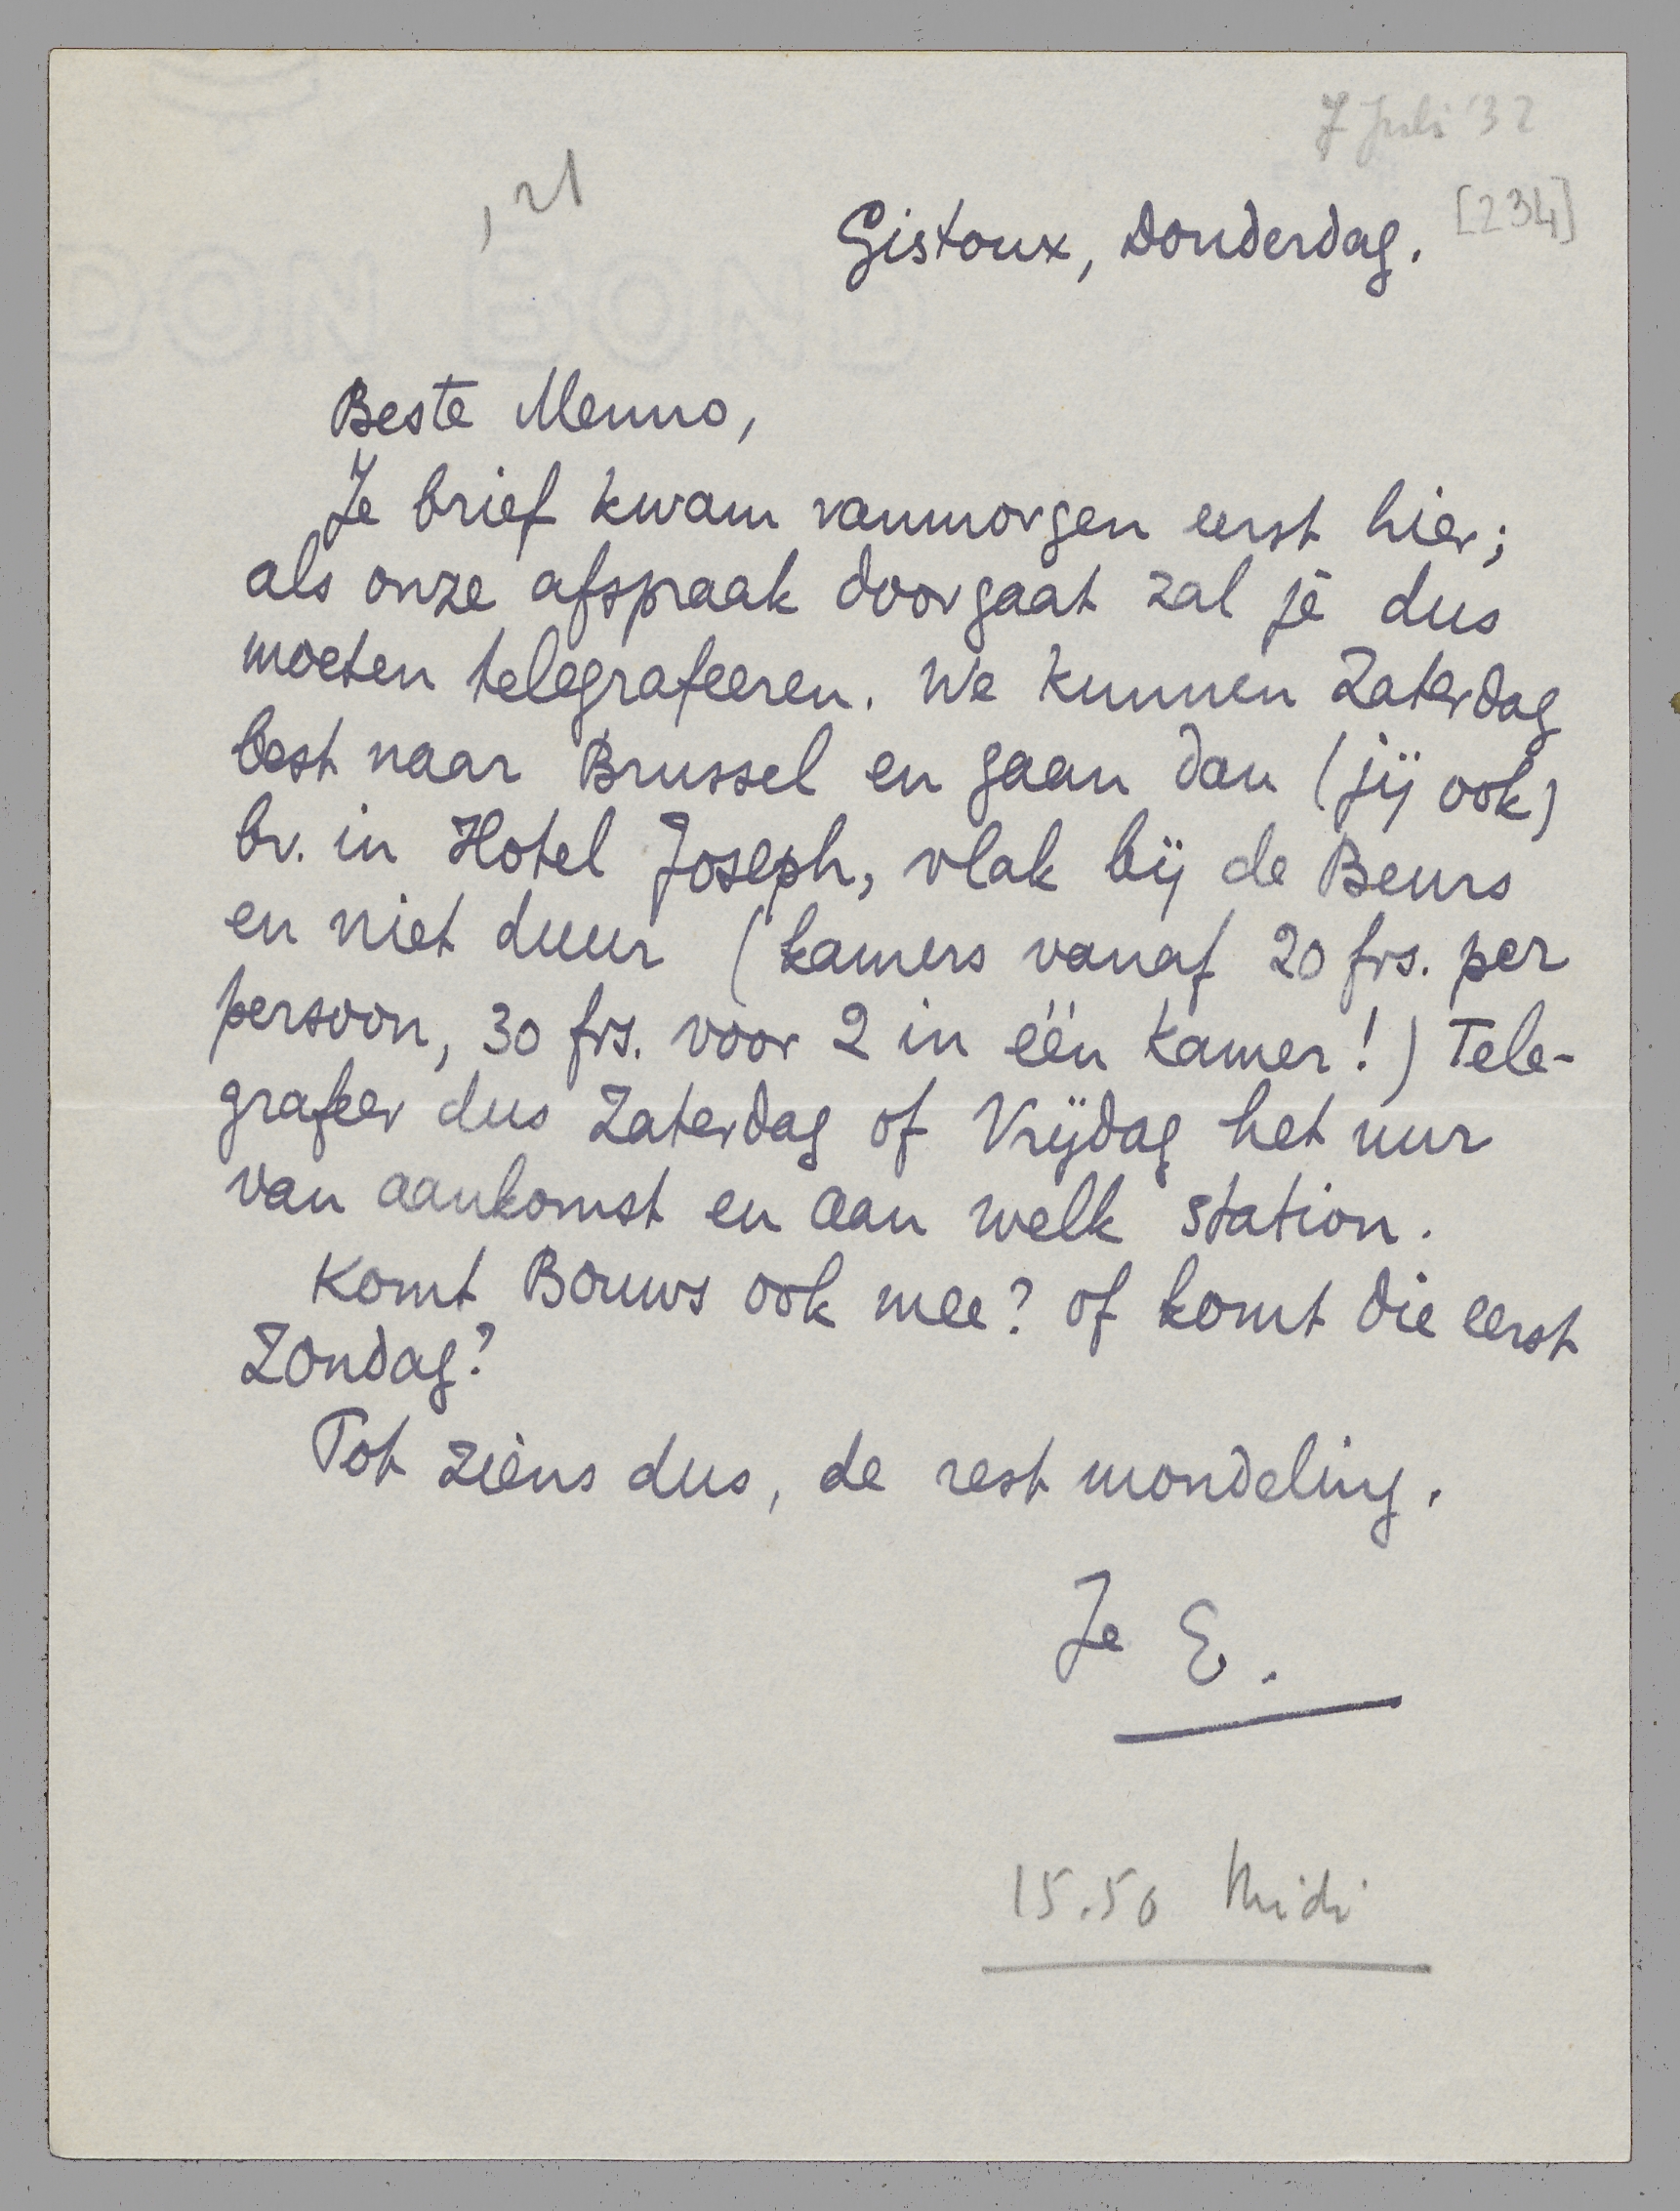 7 Juli '32
[234]
Gistoux, Donderdag.
Beste Menno,
Je brief kwam vanmorgen eerst hier;
als onze afspraak doorgaat zal je dus
moeten telegrafeeren. We kunnen Zaterdag
best naar Brussel en gaan dan (jij ook)
bv. in Hotel Joseph, vlak bij de Beurs
en niet duur (kamers vanaf 20 frs. per
persoon, 30 frs. voor 2 in één kamer!) Tele-
grafeer dus Zaterdag of Vrijdag het uur
van aankomst en aan welk station.
Komt Bouws ook mee? of komt die eerst
Zondag?
Tot ziens dus, de rest mondeling.
Je E.
15.50 Midi